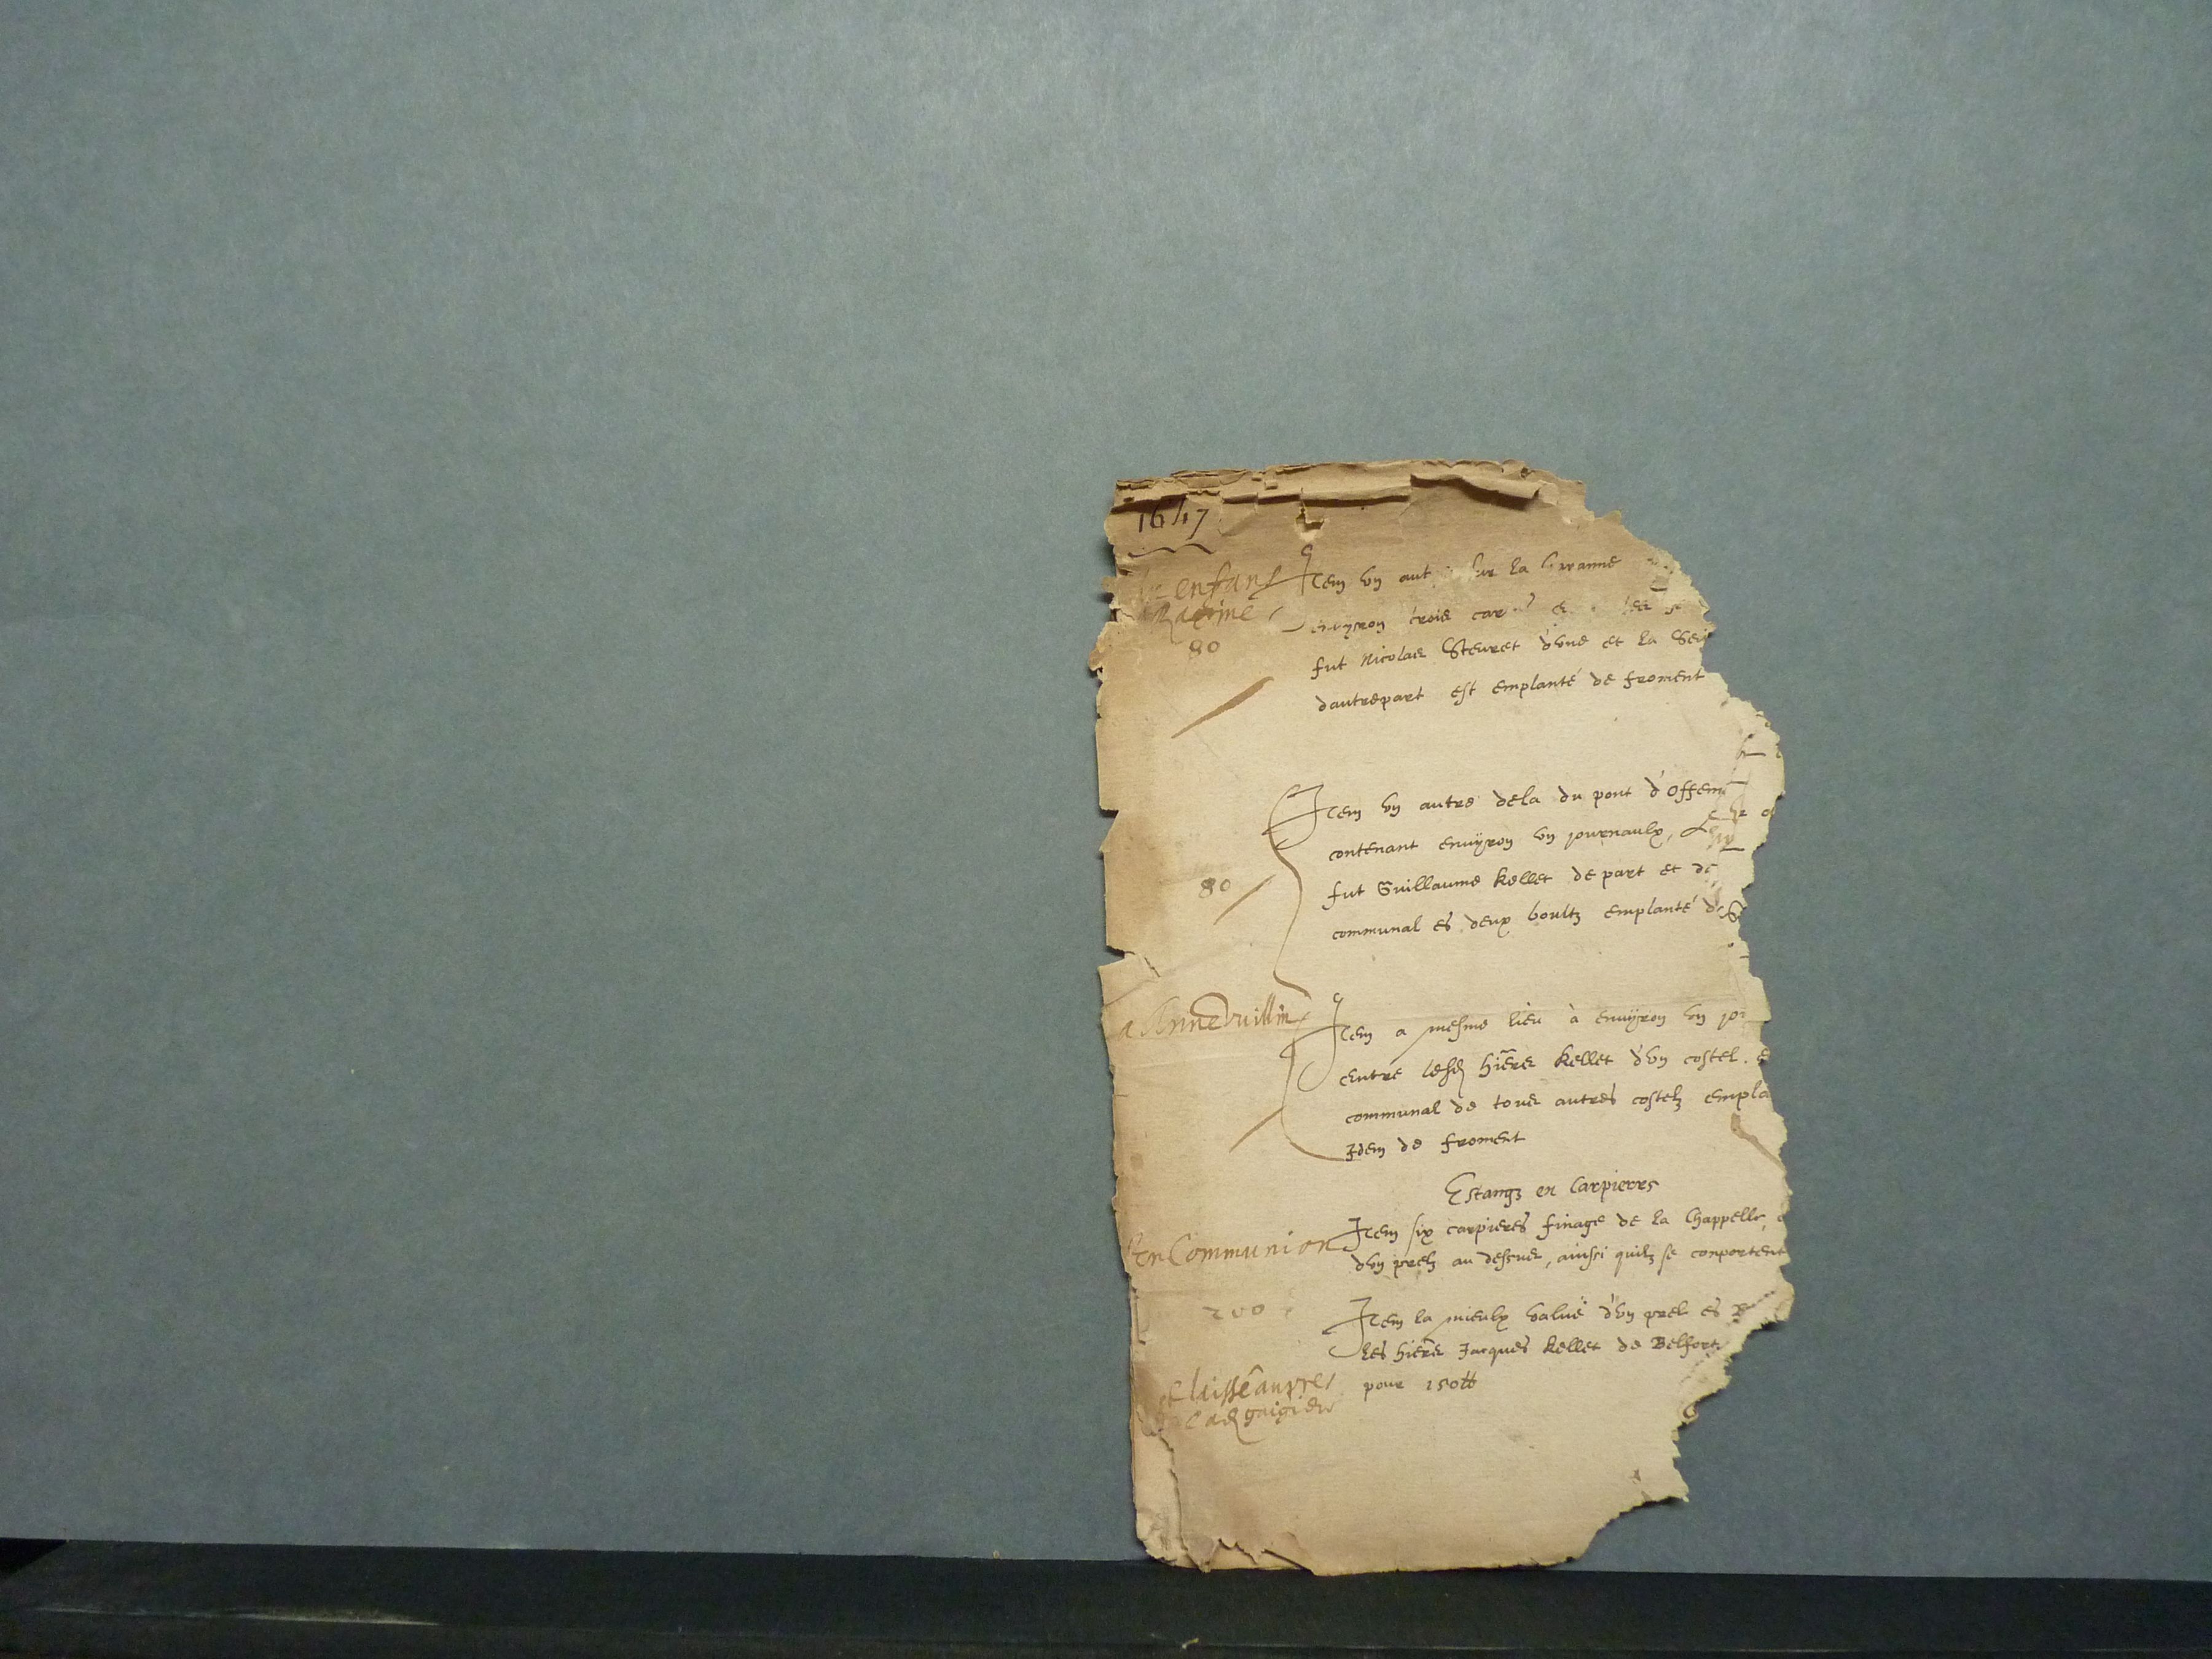 1647
enfans
80
Item vng aut sur la
envyron trois
fut Nicolas Steuret d'vne et la
dautrepart est emplanté de froment
Item vng autre dela du pont d'Offem
contenant enuÿron vng journaulx,
fut Guillaume Kellet de part et
80
communal es deux boultz emplanté
a Anne vuillin
Item a mesme lieu à enuÿron vng jo
entre lesd hiers Kellet d'vng costel. e
communal de tous autres costelz empla
Idem de froment
Estangz en Carpieres
en Communion
Item six carpieres finage de la Chappelle,
dvng prelz au dessus, ainssi quilz se comportent
200
Item la mieulx valuë d'vng prel es
les hiers Jacques Kellet de Belfort
pour 150tt
laissé aupres
gaigier